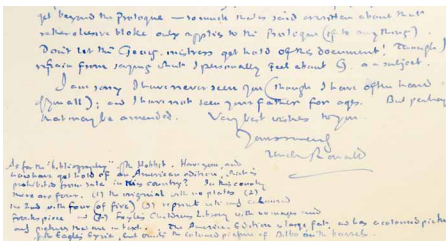 get beyond the Prologue — so much that is said or written about that
rather elusive bloke only applies to the Prologue (if to anything).
Don't let the Geog. mistress get hold of this document! Though I
refrain from saying what I personally feel about G. as a subject.
I am sorry I have never seen you (though I have often heard
of you all); and I have not seen your father for ages. But perhaps
that may be amended. Very best wishes to you.
Yours sincerely
Uncle Ronald
As for the 'bibliography' of the Hobbit. Have you, and
how have you got hold of an American edition, that is
prohibited from sale in this country? In this country
there are four. (1) the original with no plates (2)
the 2nd with four (of five) (3) reprint with only coloured
frontispiece and (4) Foyles Childrens Library with no maps and
and pictures that are in text. The American Edition is large flat and has a coloured picture
of the Eagles Eyrie, but omits the coloured picture of Bilbo on the barrels.